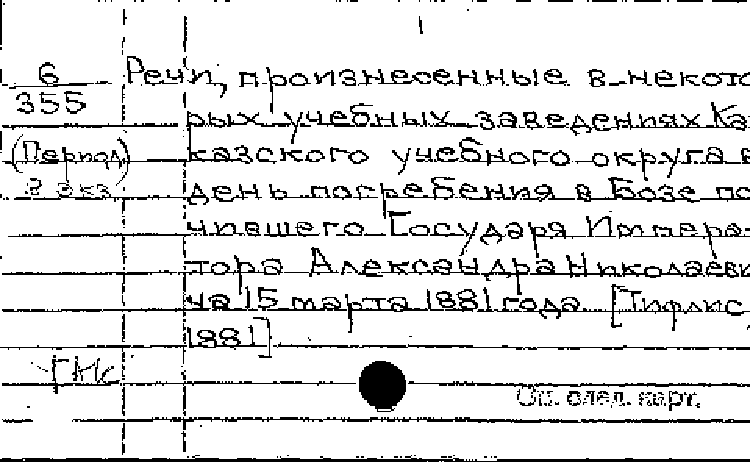 6
355
(Период)
2 экз.
Речи, произнесенные в некото
рых учебных заведениях Кав
казского учебного округа в
день погребения в Бозе по
чившего Государя Импера-
тора Александра Николаеви
ча 15 марта 1881 года. [Тифлис,
1881]
См. след. карт.